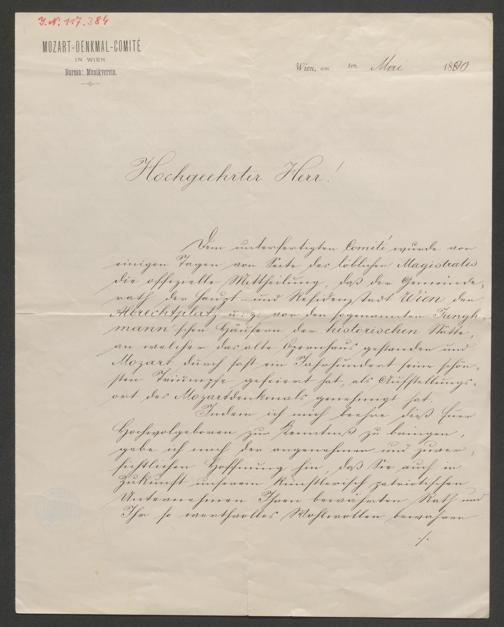 J.N. 117.384
MOZART-DENKMAL-COMITÉ
IN WIEN
Bureau: Musikverein.
Wien, am ten Mai 1890
Hochgeehrter Herr!
Dem unterfertigten Comité wurde vor
einigen Tagen von Seite des löblichen Magistrates
die offizielle Mittheilung, daß der Gemeinde-
rath der Haupt- und Residenzstadt Wien den
Albrechtsplatz u. z. vor den sogenannten Jungh
mann'schen Häusern der historischen Stätte,
an welcher das alte Opernhaus gestanden und
Mozart durch fast ein Jahrhundert seine schön-
sten Triumpfe gefeiert hat, als Aufstellungs-
ort des Mozartdenkmals genehmigt hat.
Indem ich mich beehre dieß Euer
Hochwolgeboren zur Kenntniß zu bringen,
gebe ich mich der angenehmen und zuver-
sichtlichen Hoffnung hin, daß Sie auch in
Zukunft unserem künstlerisch patriotischen
Unternehmen Ihren bewährten Rath und
Ihr so werthvolles Wohlwollen bewahren
./.